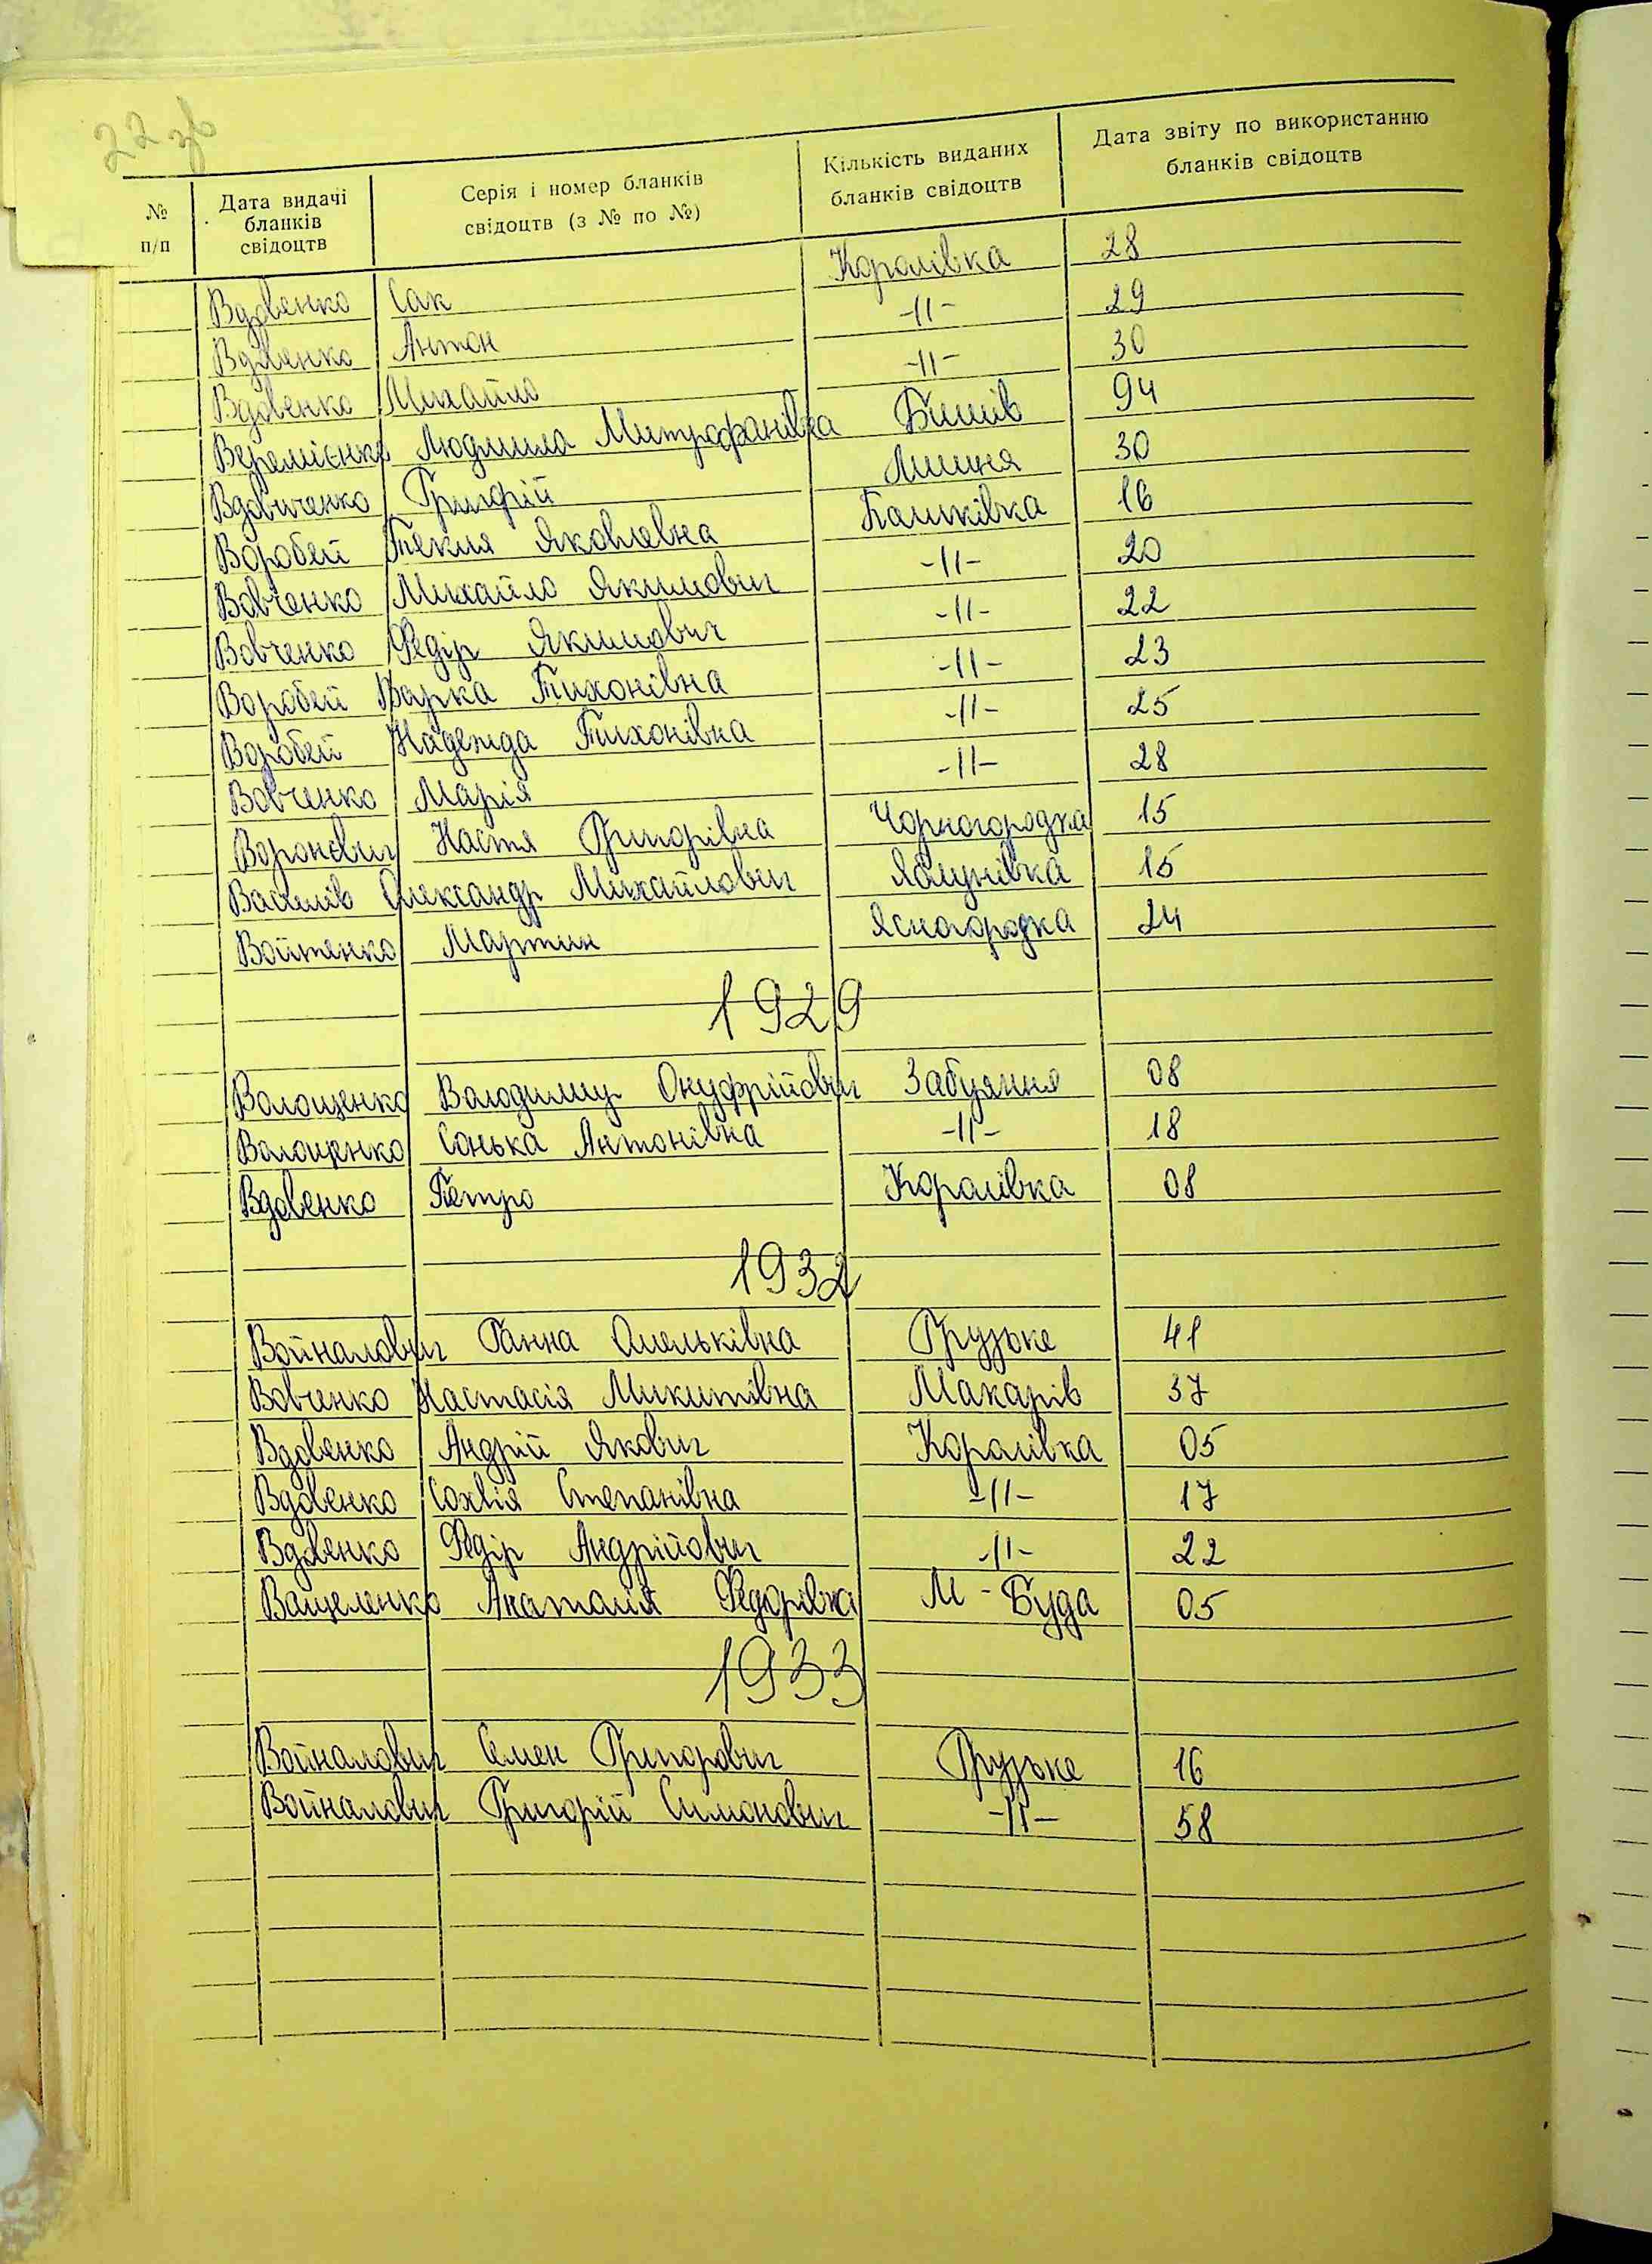 22 зв
№ п/п Дата видачі бланків свідоцтв Серія і номер бланків свідоцтв (з № по №) Кількість виданих бланків свідоцтв Дата звіту по використанню бланків свідоцтв
Вдовенко Сак Королівка 28
Вдовенко Антон -||- 29
Вдовенко Михайло -||- 30
Веремієнко Людмила Митрофанівка Бишів 94
Вдовиченко Григорій Лишня 30
Воробей Текля Яковлевна Пашківка 16
Вовченко Михайло Якимович -||- 20
Вовченко Федір Якимович -||- 22
Воробей Варка Тихонівна -||- 23
Воробей Надежда Тихонівна -||- 25
Вовченко Марія -||- 28
Воронович Настя Григорівна Чорногородка 15
Василів Олександр Михайлович Яблунівка 15
Войтенко Мартин Ясногородка 24
1929
Волощенко Володимир Онуфрійович Забуяння 08
Волощенко Сонька Антонівна -||- 18
Вдовенко Петро Королівка 08
1932
Войналович Ганна Омельківна Грузьке 41
Вовченко Настасія Микитівна Макарів 37
Вдовенко Андрій Якович Королівка 05
Вдовенко Сохвія Степанівна -||- 17
Вдовенко Федір Андрійович -||- 22
Ващеленко Анаталія Федорівна М-Буда 05
1933
Войналович Семен Григорович Грузьке 16
Войналович Григорій Симонович -||- 58